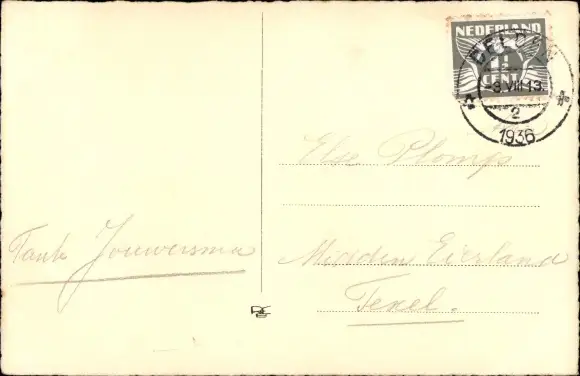 NEDERLAND
1½
CENT
DELDEN
-3.VIII.13.
2
1936
Else Plomp
Midden Eierland
Texel.
Tante Jouwersma